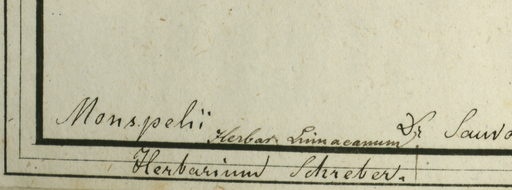 Monspelii Dr Sauva
Herbar. Linnaeanum
Herbarium Schreber.